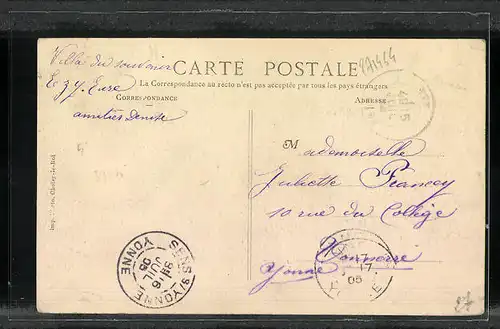 Villa du souvenir
CARTE POSTALE
971464
Ezy. Eure
La Correspondance au recto n'est pas acceptée par tous les pays étrangers
CORRESPONDANCE
ADRESSE
amitiés Denise
Mademoiselle
Juliette
10 rue du Collège
Tonnerre
Yonne
SENS S/YONNE
16
JUIL
05
YONNE
17
05
27